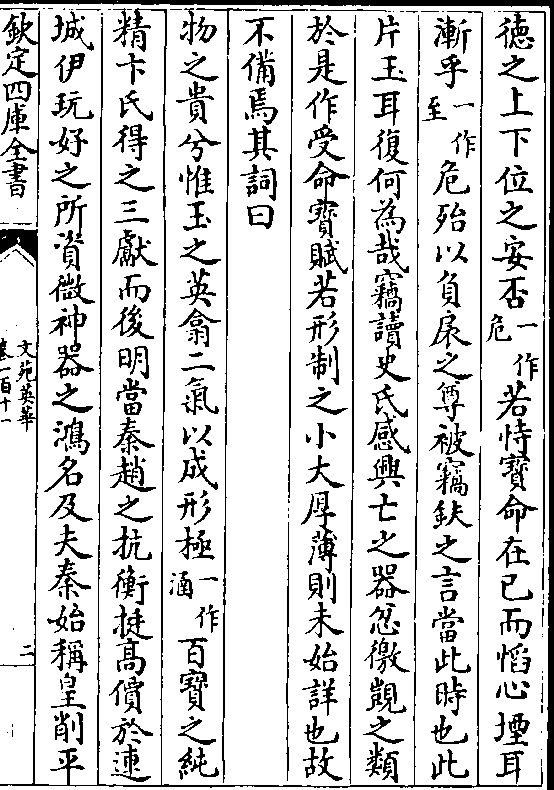 德之上下位之安否一作危若恃寶命在已而慆心堙耳
漸乎一作至危殆以負扆之尊被竊鈇之言當此時也此
片玉耳復何為哉竊讀史氏感興亡之器忿徼覬之類
於是作受命寳賦若形制之小大厚薄則未始詳也故
不備焉其詞曰
物之貴兮惟玉之英翕二氣以成形極一作涵百寶之純
精卞氏得之三獻而後明當秦趙之抗衡挺高價於連
城伊玩好之所資微神器之鴻名及夫秦始稱皇削平
欽定四庫全書
文苑英華
卷一百十一
二